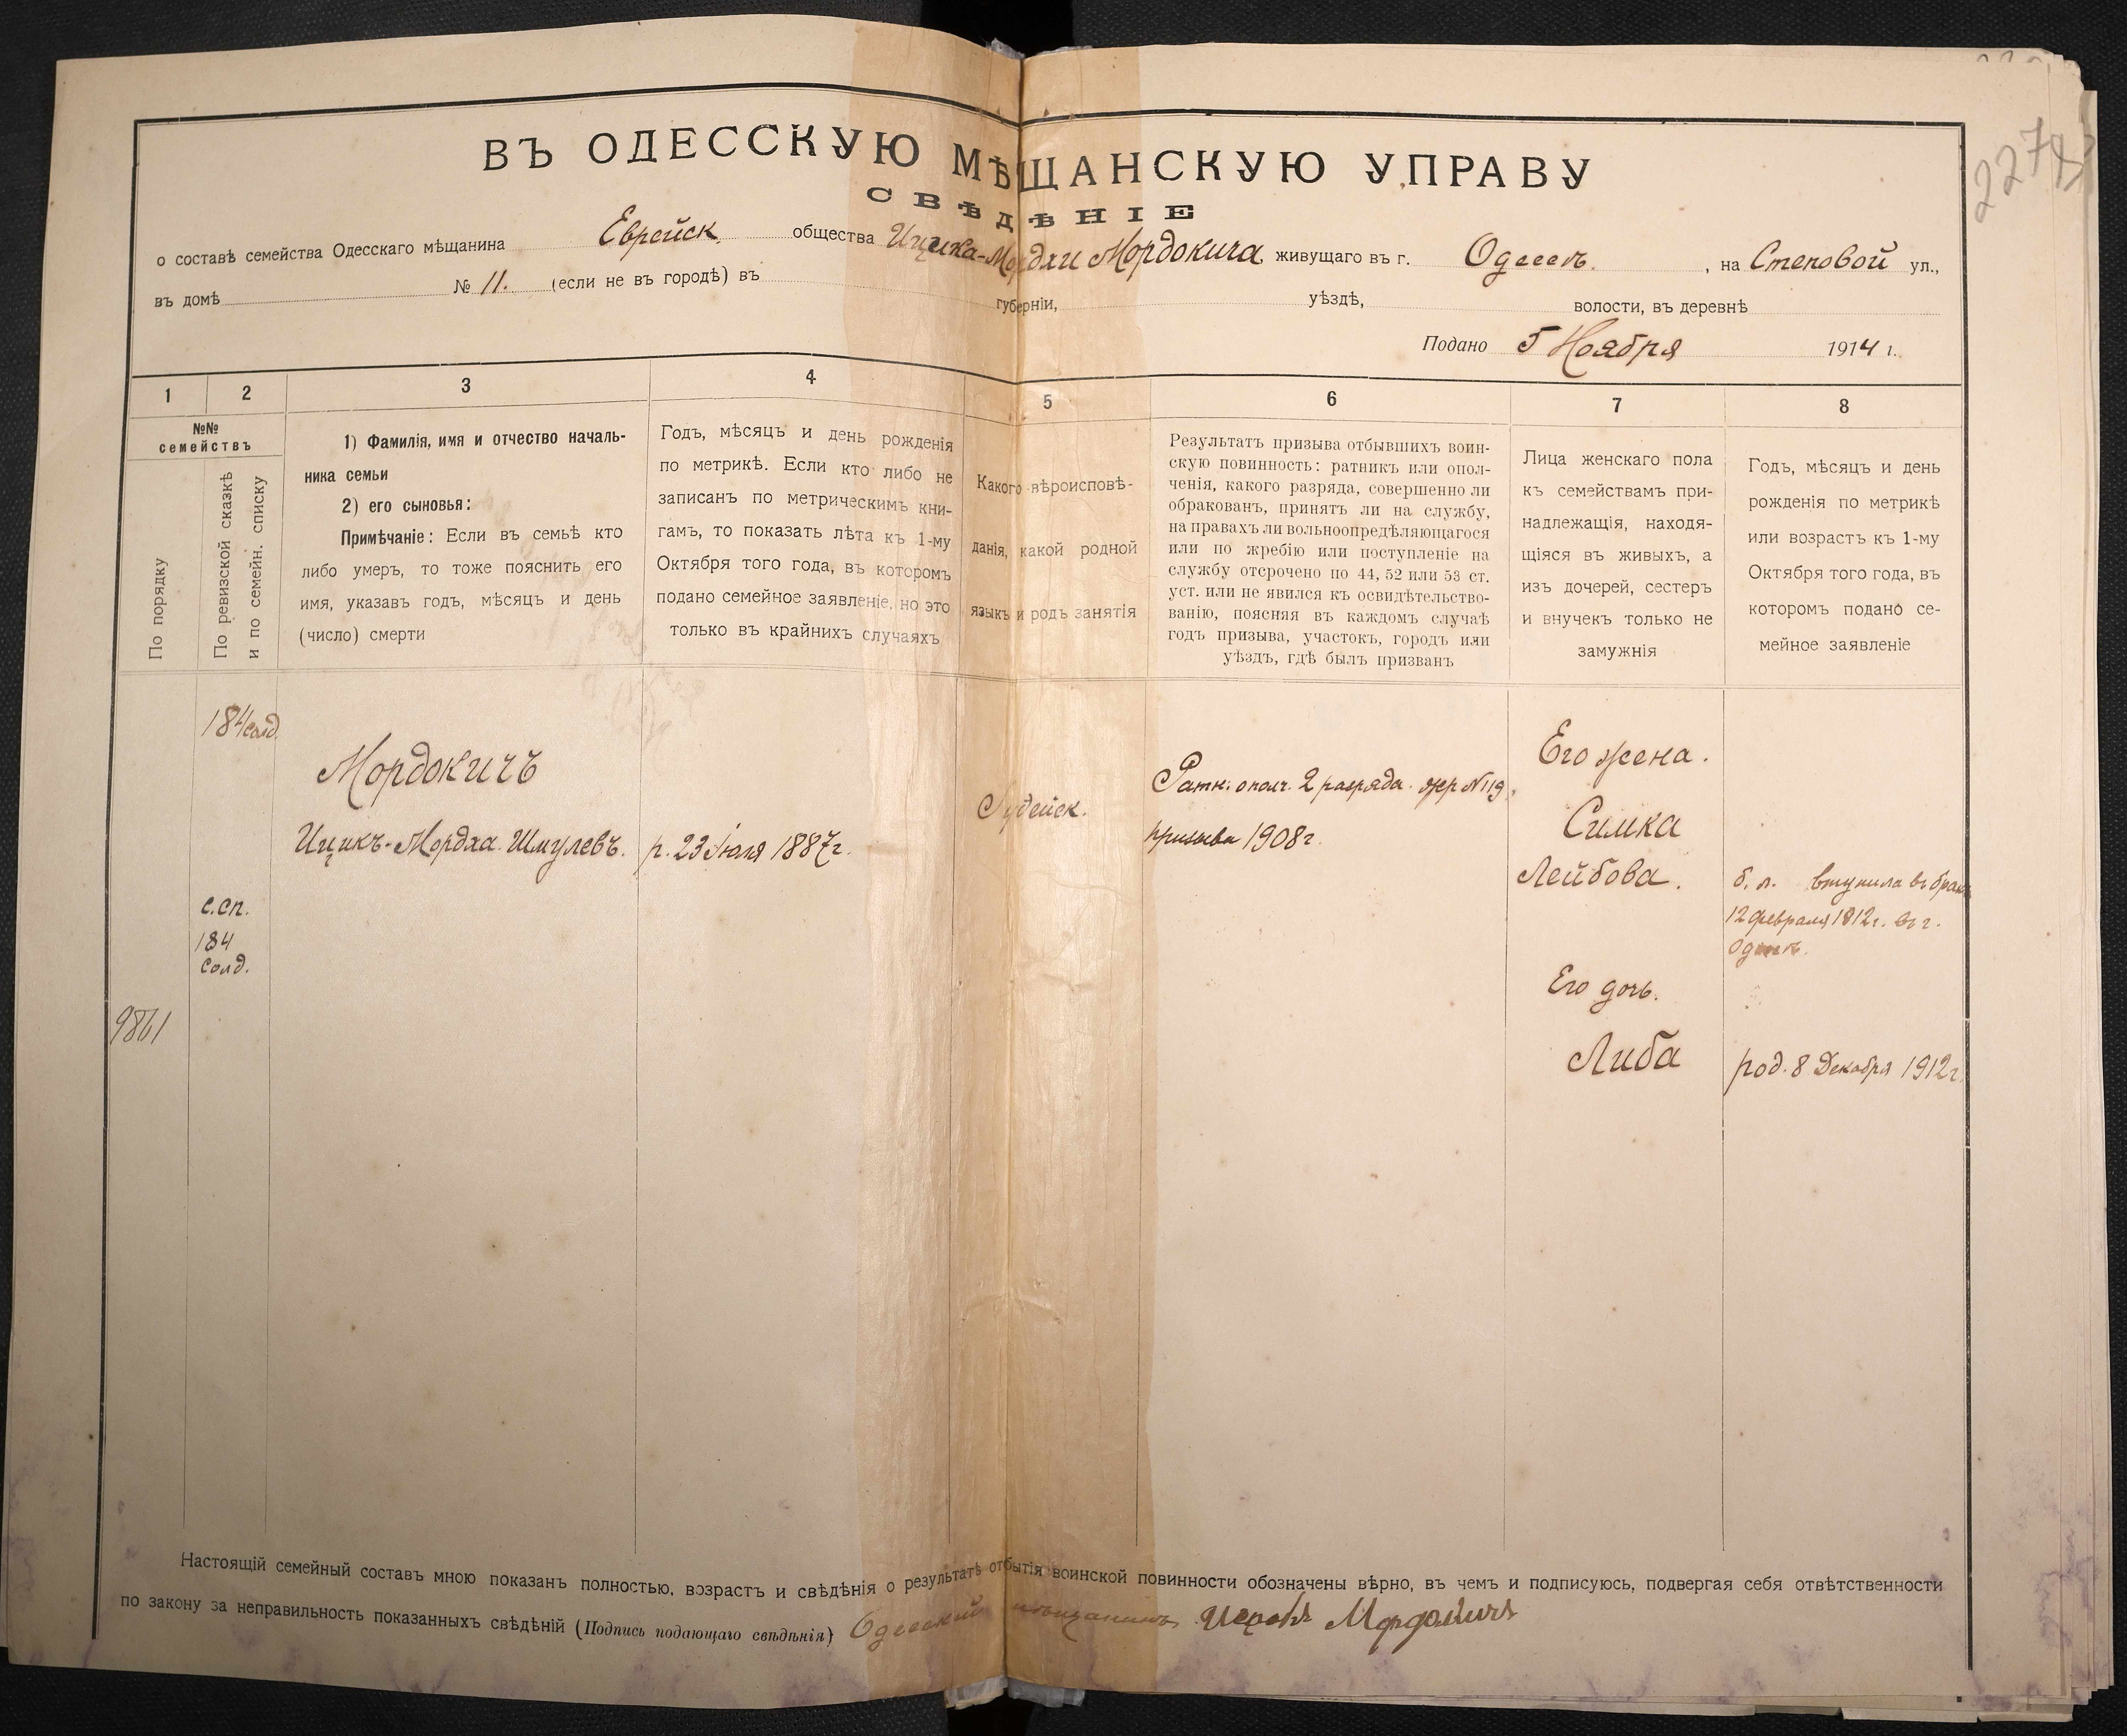 2274
ВЪ ОДЕССКУЮ МѢЩАНСКУЮ УПРАВУ
СВѢДѢНІЕ
о составѣ семейства Одесскаго мѣщанина Еврейск. общества Ицика-Мордхи Мордокича, живущаго въ г. Одессѣ, на Степовой ул.,
въ домѣ № 11. (если не въ городѣ) въ губерніи, уѣздѣ, волости, въ деревнѣ
Подано 5 Ноября 1914 г.
1 2 3 4 5 6 7 8
№№
семействъ
По порядку
По ревизской сказкѣ
и по семейн. списку
1) Фамилія, имя и отчество началь-
ника семьи
2) его сыновья:
Примѣчаніе: Если въ семьѣ кто
либо умеръ, то тоже пояснить его
имя, указавъ годъ, мѣсяцъ и день
(число) смерти
Годъ, мѣсяцъ и день рожденія
по метрикѣ. Если кто либо не
записанъ по метрическимъ кни-
гамъ, то показать лѣта къ 1-му
Октября того года, въ которомъ
подано семейное заявленіе, но это
только въ крайнихъ случаяхъ
Какого вѣроисповѣ-
данія, какой родной
языкъ и родъ занятія
Результатъ призыва отбывшихъ воин-
скую повинность: ратникъ или опол-
ченія, какого разряда, совершенно ли
обракованъ, принятъ ли на службу,
на правахъ ли вольноопредѣляющагося
или по жребію или поступленіе на
службу отсрочено по 44, 52 или 53 ст.
уст. или не явился къ освидѣтельство-
ванію, поясняя въ каждомъ случаѣ
годъ призыва, участокъ, городъ или
уѣздъ, гдѣ былъ призванъ
Лица женскаго пола
къ семействамъ при-
надлежащія, находя-
щіяся въ живыхъ, а
изъ дочерей, сестеръ
и внучекъ только не
замужнія
Годъ, мѣсяцъ и день
рожденія по метрикѣ
или возрастъ къ 1-му
Октября того года, въ
которомъ подано се-
мейное заявленіе
184 солд.
с.сп.
184
солд.
9861
Мордокичъ
Ицикъ-Мордха Шмулевъ.
р. 23 Іюля 1887 г.
Іудейск.
Ратн. ополч. 2 разряда. жер № 119,
призыва 1908 г.
Его жена.
Симка
Лейбова.
б. л. вступила въ бракъ
12 февраля 1912 г. въ г.
Одессѣ.
Его дочь.
Либа
род. 8 Декабря 1912 г.
Настоящій семейный составъ мною показанъ полностью, возрастъ и свѣдѣнія о результатѣ отбытія воинской повинности обозначены вѣрно, въ чемъ и подписуюсь, подвергая себя отвѣтственности
по закону за неправильность показанныхъ свѣдѣній (Подпись подающаго свѣдѣнія) Одесскій мѣщанинъ Мордокичъ